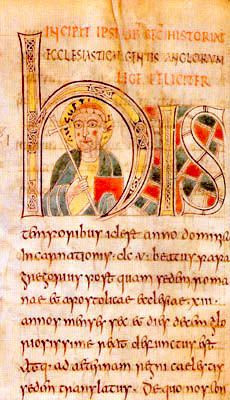 INCIPIT IPSIUS SEC̄ HISTORIAE
ECCLESIASTICAE GENTIS ANGLORUM
FELICITER
hIS
temporibus id est anno domini
Incarnationis dc u beatus papa
gregorius post quam sedem roma
nae & apostolicae ecclesiae xiii
annos menses sex & dies decem glo
riosissime rexit defunctus est
Atq: ad aeternam regni caelestis
sedem translatus. De quo nos